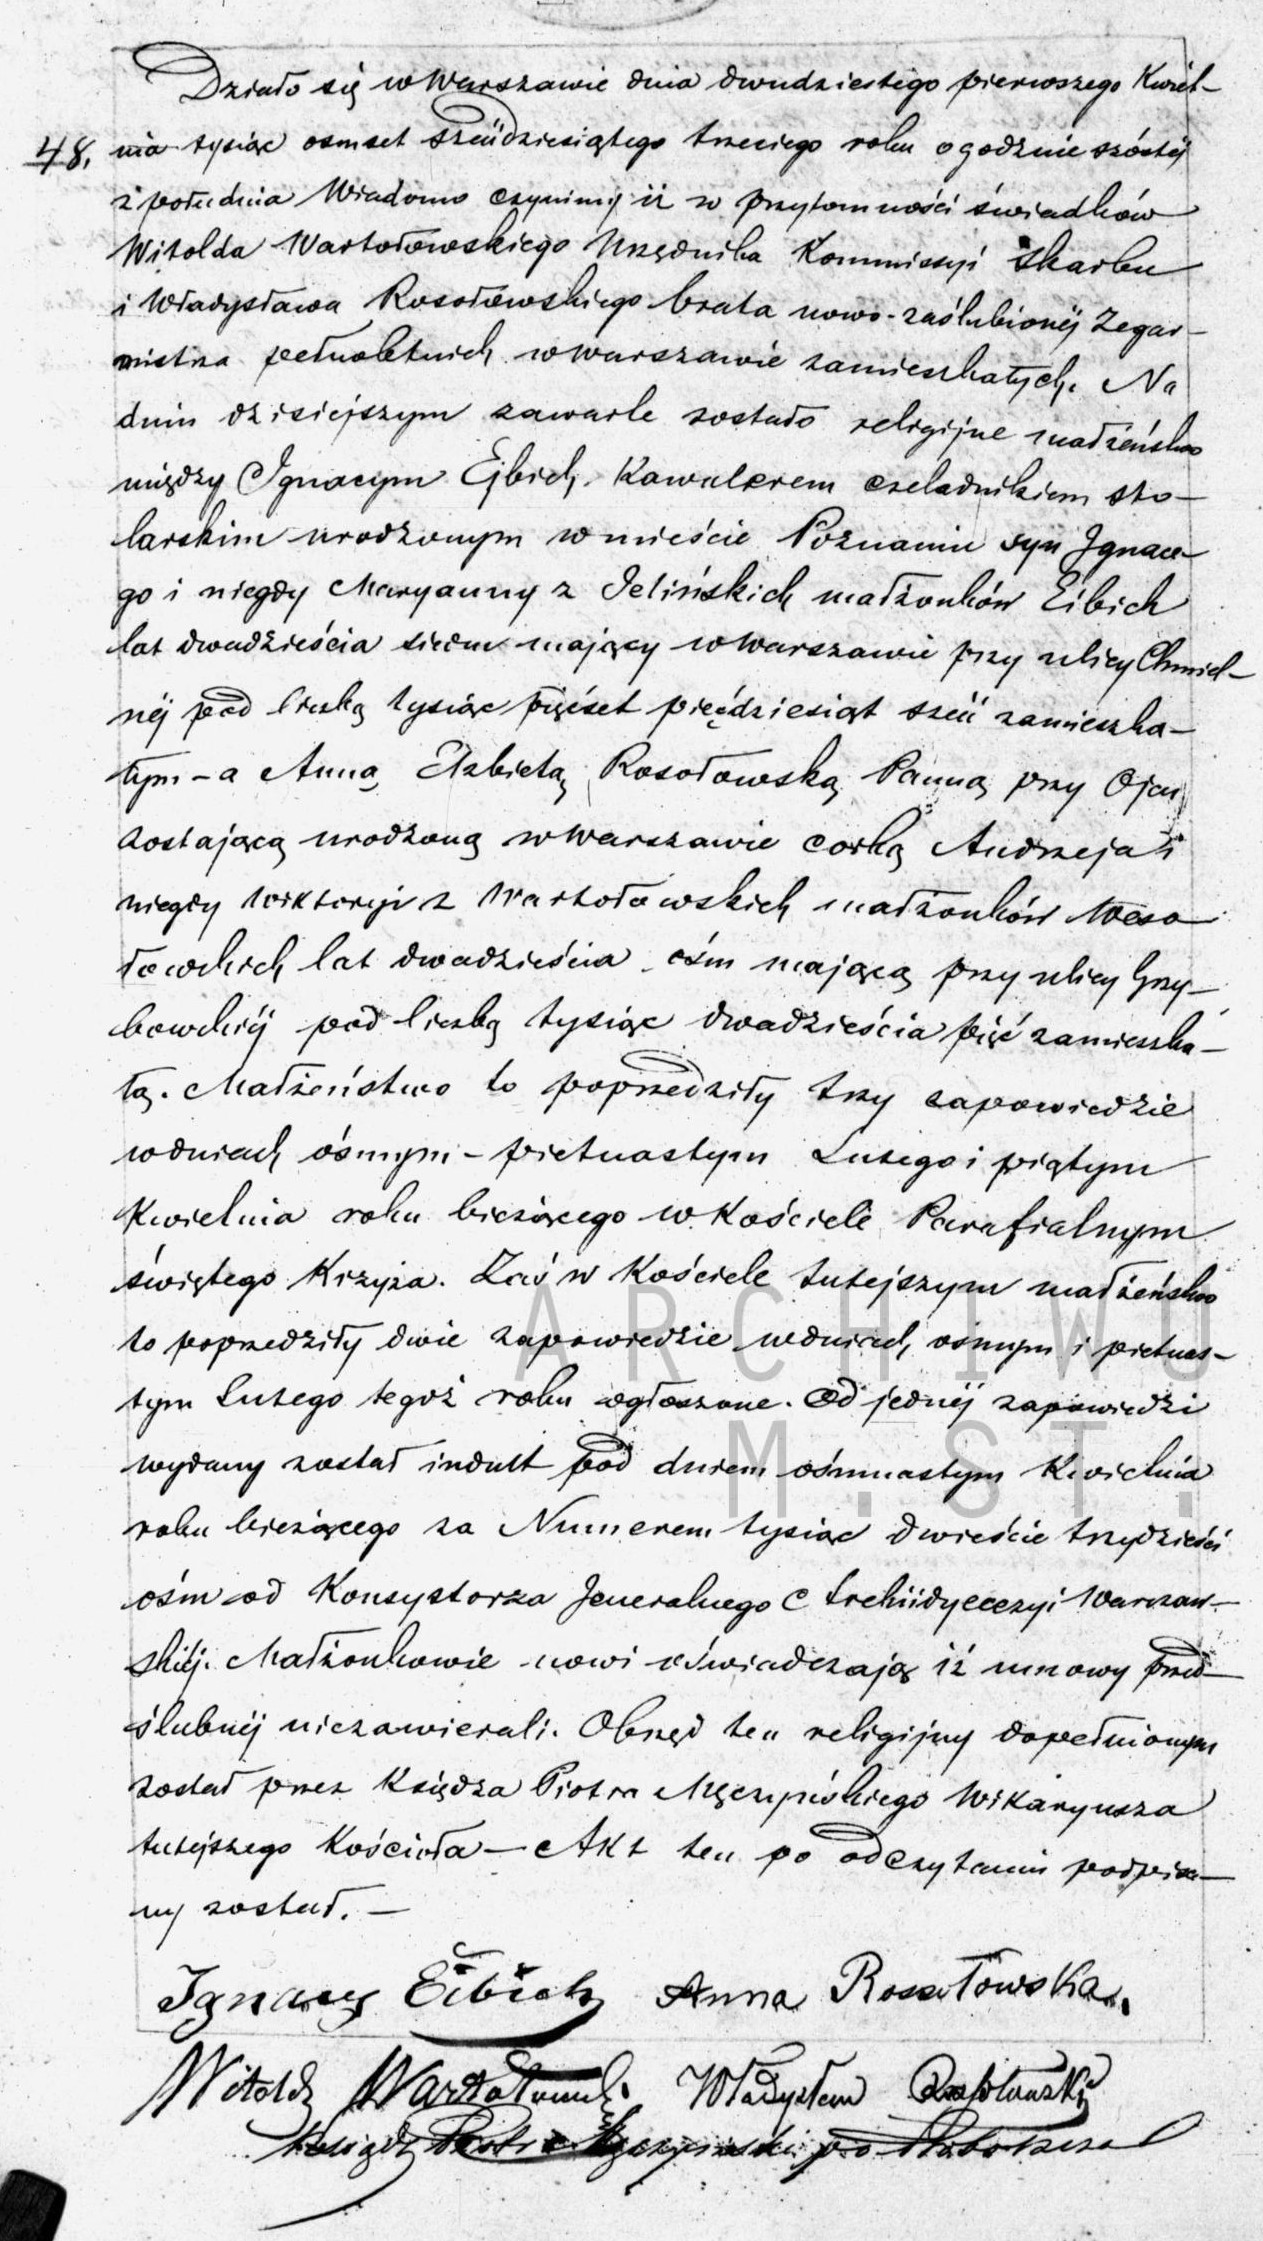 Działo się w Warszawie dnia dwudziestego pierwszego Kwiet-
48. nia tysiąc ośmset sześćdziesiątego trzeciego roku o godzinie szóstej
z południa Wiadomo czynimy iż w przytomności świadków
Witolda Wartołowskiego Urzędnika Kommissyi Skarbu
i Władysława Rosołowskiego brata nowo-zaślubionéj Zegar-
mistrza pełnoletnich w Warszawie zamieszkałych. Na
dniu dzisiejszym zawarte zostało religijne małżeństwo
między Ignacym Ejbich, Kawalerem czeladnikiem sto-
larskim urodzonym w mieście Poznaniu syn Ignace-
go i niegdy Maryanny z Jelińskich małżonków Eibich
lat dwadzieścia siedm mający w Warszawie przy ulicy Chmiel-
néj pod liczbą tysiąc pięćset pięćdziesiąt sześć zamieszka-
łym - a Anną Elzbietą Rosołowską Panną przy Ojcu
zostającą urodzoną w Warszawie córką Andrzeja i
niegdy Wiktoryi z Wartołowskich małżonków
lat dwadzieścia ośm mającą przy ulicy Grzy-
bowskiéj pod liczbą tysiąc dwadzieścia pięć zamieszka-
łą. Małżeństwo to poprzedziły trzy zapowiedzie
w dniach ósmym - pietnastym Lutego i piątym
Kwietnia roku bieżącego w Kościele Parafialnym
świętego Krzyża. Zaś w Kościele tutejszym małżeństwo
to poprzedziły dwie zapowiedzie w dniach ósmym i pietnas-
tym Lutego tegoż roku ogłoszone. Od jednéj zapowiedzi
wydany został indult pod dniem ośmnastym Kwietnia
roku bieżącego za Numerem tysiąc dwieście trzydzieści
ośm od Konsystorza Jeneralnego Archidyecezyi Warszaw-
skiéj. Małżonkowie nowi oświadczają iż umowy przed-
ślubnéj niezawierali. Obrzęd ten religijny dopełnionym
został przez Księdza Piotra Męczyńskiego Wikaryusza
tutejszego Kościoła - Akt ten po odczytaniu podpisa-
ny został. -
Ignacy Eibich Anna Rosołowska.
Witold Władysław Rosołowski
Piotr
ARCHIWU
M.ST.